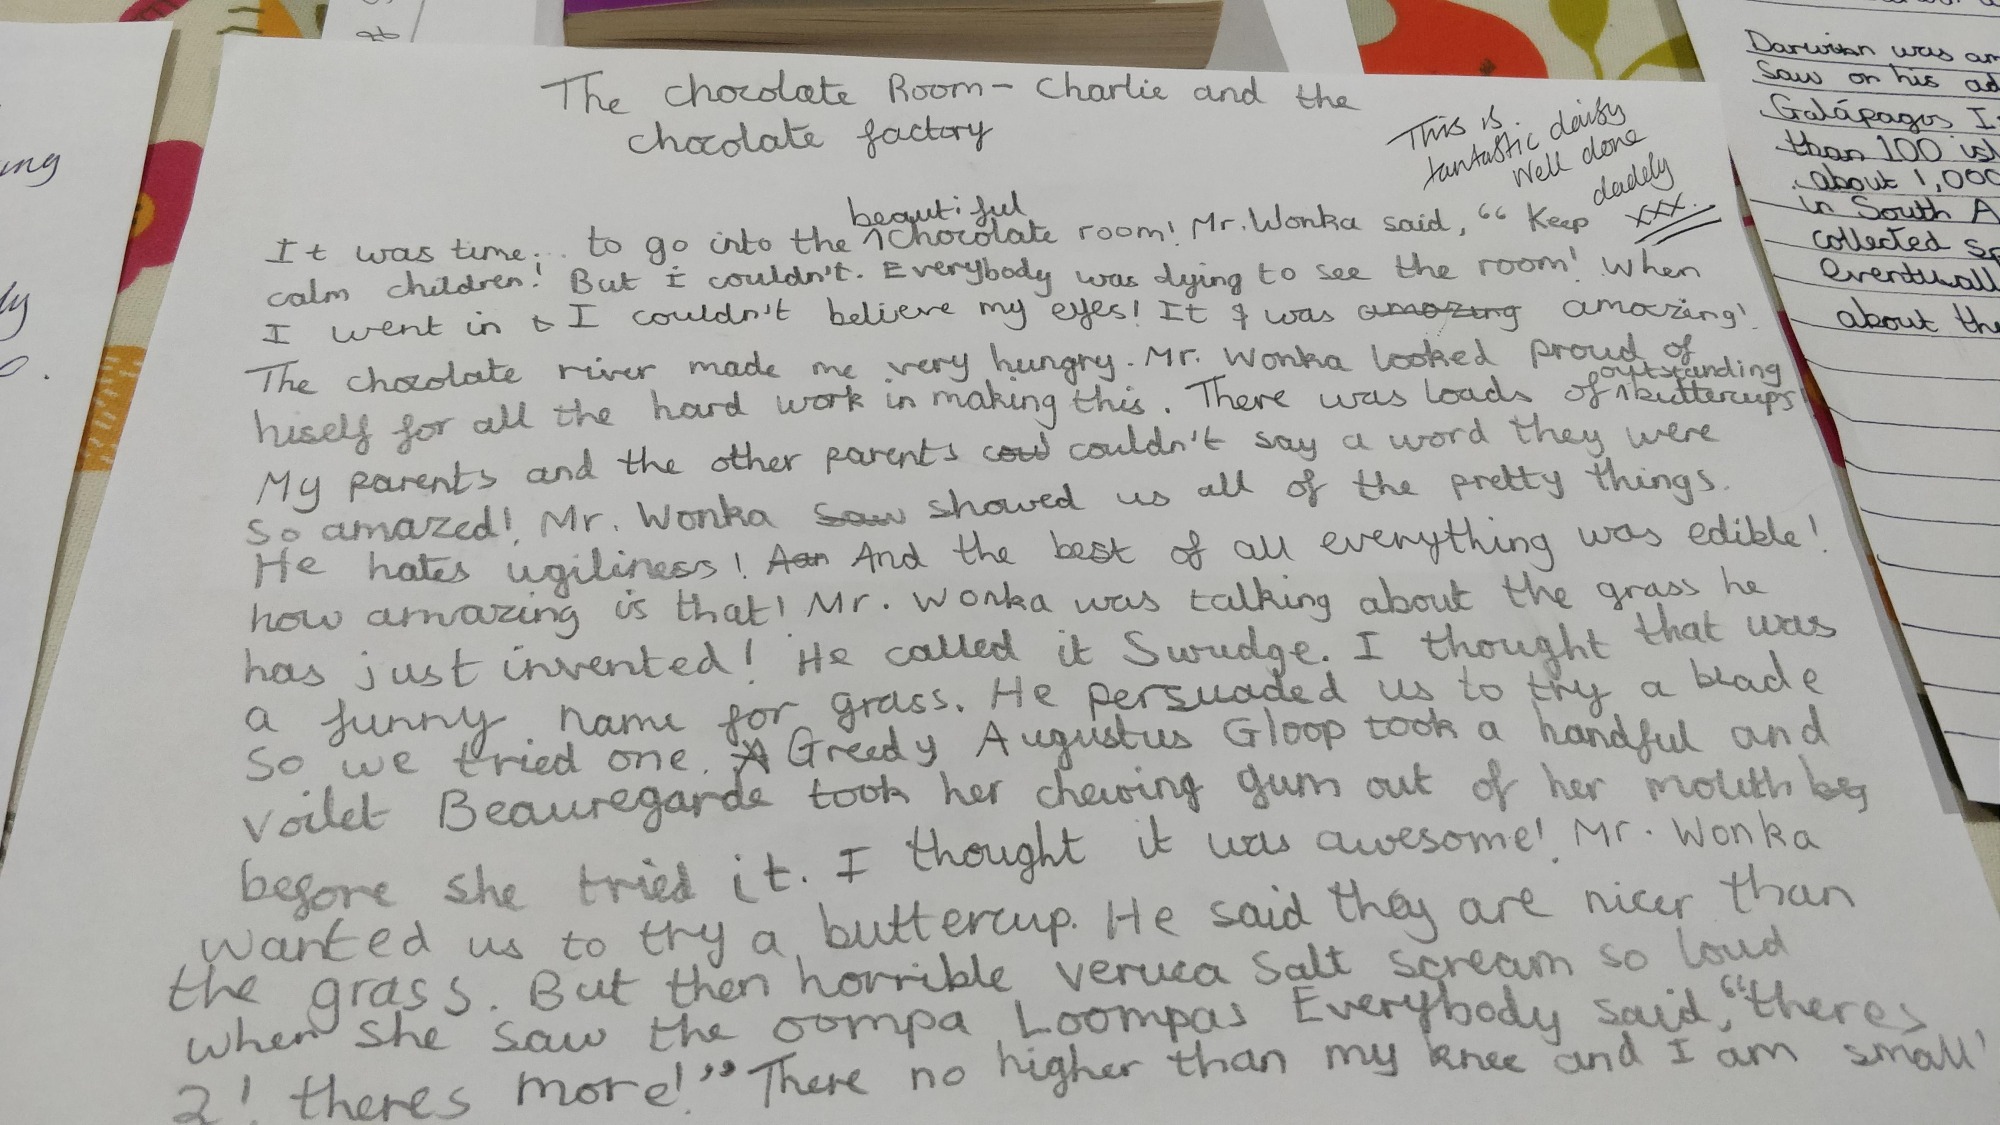 The chocolate Room- Charlie and the
chocolate factory
This is
fantastic daisy
Well done
daddy
xxx.
beautiful
It was time... to go into the ^chocolate room! Mr. Wonka said, "Keep
calm children! But i couldn't. Everybody was dying to see the room! When
I went in t I couldn't believe my eyes! It was amazing amazing!
The chocolate river made me very hungry. Mr. Wonka looked proud of
outstanding
hiself for all the hard work in making this. There was loads of ^buttercups
My parents and the other parents cow couldn't say a word they were
so amazed! Mr. Wonka saw showed us all of the pretty things.
He hates ugiliness! Aan And the best of all everything was edible!
how amazing is that! Mr. Wonka was talking about the grass he
has just invented! He called it Swudge. I thought that was
a funny name for grass. He persuaded us to try a blade
so we tried one. A Greedy Augustus Gloop took a handful and
voilet Beauregarde took her chewing gum out of her mouth beg
before she tried it. I thought it was awesome! Mr. Wonka
wanted us to try a buttercup. He said they are nicer than
the grass. But then horrible veruca Salt scream so loud
when she saw the oompa Loompas Everybody said, "theres
2! theres more!" There no higher than my knee and I am small!
Darwin was
saw on his
Galápagos
than 100
about 1,000
in South
collected
about the